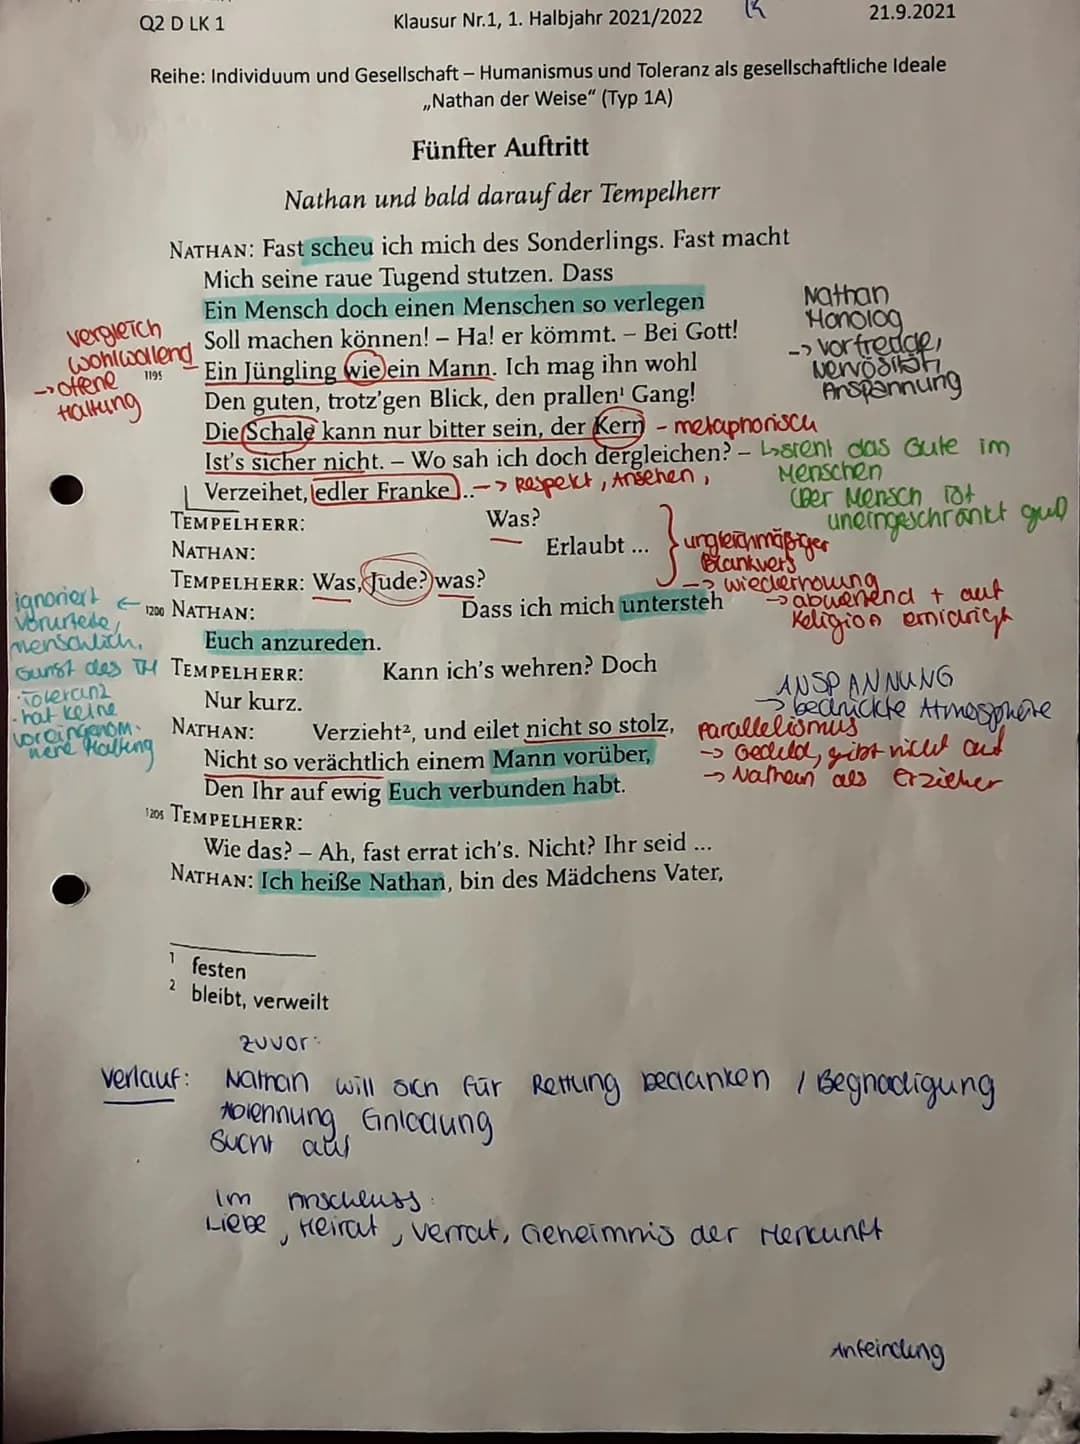 Q2 D LK 1
Klausur Nr.1, 1. Halbjahr 2021/2022
21.9.2021
Reihe: Individuum und Gesellschaft – Humanismus und Toleranz als gesellschaftliche Ideale
„Nathan der Weise“ (Typ 1A)
Fünfter Auftritt
Nathan und bald darauf der Tempelherr
NATHAN: Fast scheu ich mich des Sonderlings. Fast macht
Mich seine raue Tugend stutzen. Dass
Ein Mensch doch einen Menschen so verlegen
Soll machen können! – Ha! er kömmt. – Bei Gott!
1195 Ein Jüngling wie ein Mann. Ich mag ihn wohl
Den guten, trotz'gen Blick, den prallen¹ Gang!
Die Schale kann nur bitter sein, der Kern
Ist's sicher nicht. – Wo sah ich doch dergleichen? –
Verzeihet, edler Franke ...
TEMPELHERR: Was?
NATHAN: Erlaubt ...
TEMPELHERR: Was, Jude? was?
1200 NATHAN: Dass ich mich untersteh
Euch anzureden.
TEMPELHERR: Kann ich's wehren? Doch
Nur kurz.
NATHAN: Verzieht², und eilet nicht so stolz,
Nicht so verächtlich einem Mann vorüber,
Den Ihr auf ewig Euch verbunden habt.
1205 TEMPELHERR:
Wie das? – Ah, fast errat ich's. Nicht? Ihr seid ...
NATHAN: Ich heiße Nathan, bin des Mädchens Vater,
vergleich
wohlwollend
→ offene
Haltung
Nathan
Monolog
-> Vorfreude,
Nervösität,
Anspannung
- metaphorisch
↳ sieht das Gute im
Menschen
(Der Mensch ist
uneingeschränkt gut)
--> Respekt, Ansehen,
ungleichmäßiger
Blankvers
-> wiederholung
→ abwehrend + auf
Religion erniedrigt
ignoriert ←
vorurteile,
menschlich,
Gunst des TH
·Toleranz
·hat keine
voreingenom-
mene Haltung
ANSPANNUNG
→ bedrückte Atmosphäre
Parallelismus
-> Geduld, gibt nicht auf
-> Nathan als Erzieher
1 festen
2 bleibt, verweilt
zuvor:
Verlauf: Nathan will sich für Rettung bedanken / Begnadigung
Ablehnung Einladung
sucht auf
im Anschluss:
Liebe, Heirat, Verrat, Geheimnis der Herkunft
Anfeindung